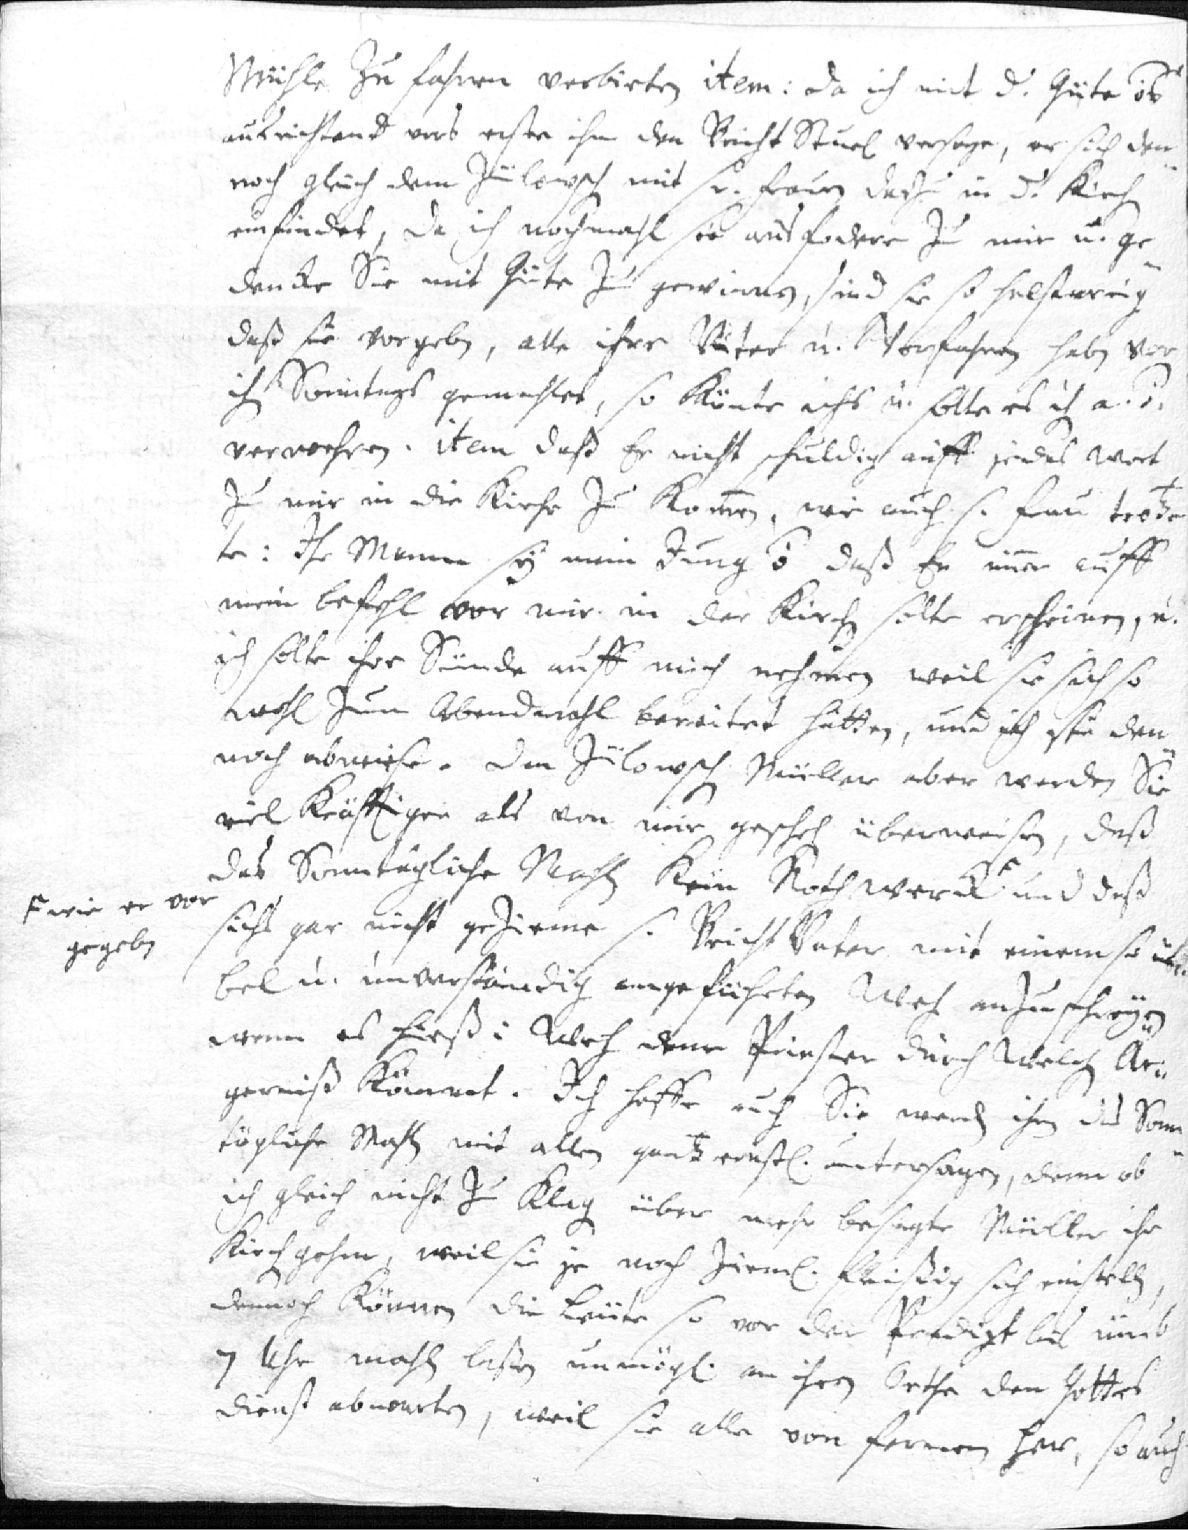 Mühle zu fahren verbieten item: da ich mit d. Güte
ausrichtend vors erste ihm den Beicht Stuel versage, er sich den„
noch gleich dem Jülowsch mit sr. Frauen in d. Kirch
einfindet, da ich nochmahl sie ausfodere zu mir u. ge„
dencke Sie mit Güte zu gewinnen, sind sie so halsstarrig
daß sie vorgeben, alle ihre Väter u. Vorfahren haben vor
ich Sonntags gemahlet, so könte ichs u. solte es ich
verwehren. item daß Er nicht schuldig auff jedes wort
zu mir in die Kirche zu kom̄en, wie auch s. Frau trotze
te: Ihr Mann sey mein Jung daß Er auff
mein befehl vor mir in der Kirch solte erscheinen, u.
ich solte ihre Sünde auff mich nehmen weil sie sich so
wohl zum Abendmahl bereitet hätten, und ich sie den„
noch abweise. Den Jülowsch Müller aber werden Sie
viel kräfftiger als von mir gescheh überweisen, daß
das Sonntägliche Mahlen kein Nothwerck F und daß
F wie er vor
gegeben
sichs gar nicht gezieme s. Beicht Vater mit einem so ü„
bel u. unverständig angeführten Weh anzuschreyen
wenn es hieß: Weh dem Priester durch welch Är„
gerniß kömmet. Ich hoffe auch Sie werden ihm das Sonn„
tägliche Mahlen mit allen gantz ernstl. untersagen, denn ob
ich gleich nicht zu klag über mehr besagte Müller ihr
Kirchgehen, weil sie je noch zieml. fleißig sich einstellen,
dennoch können die Leute so vor der Predigt bis umb
7 Uhr mahlen lassen unmögl. an ihrem Orthe den Gottes
dienst abwarten, weil sie alle von fernen her, so auch